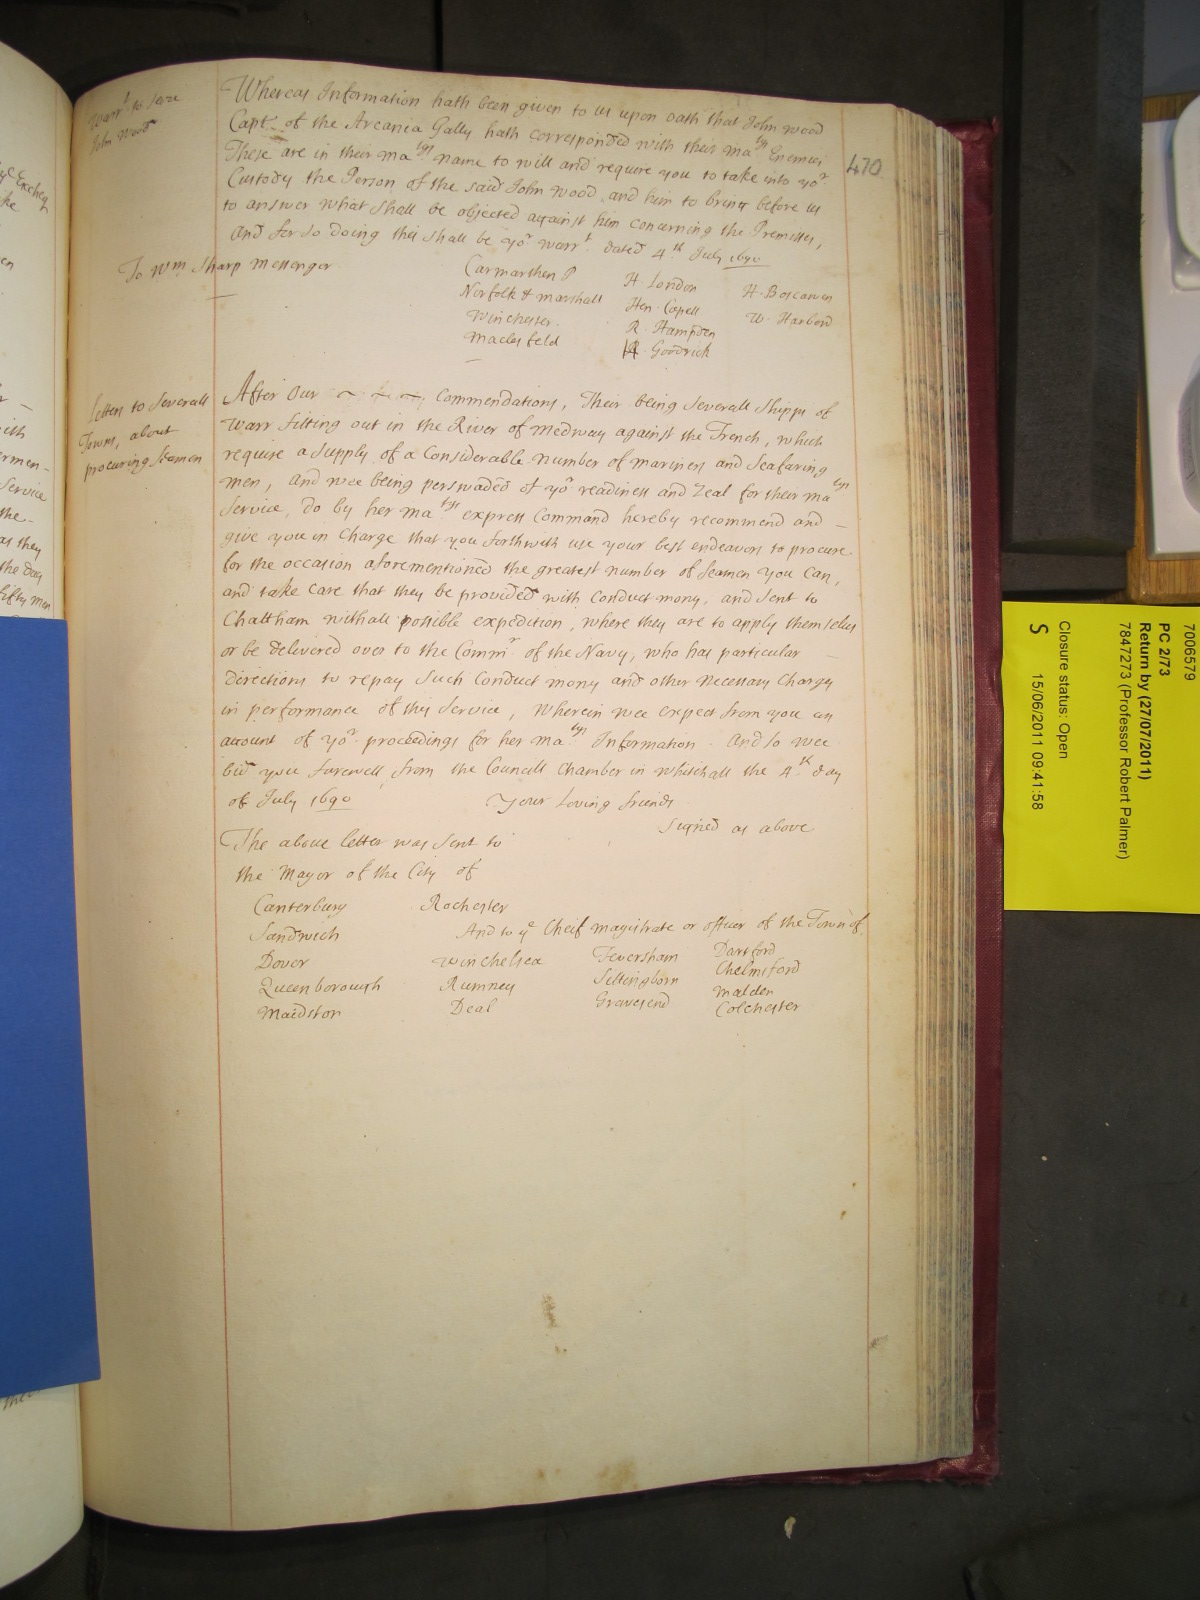 Warr.t to seize
John Wood
Whereas Information hath been given to us upon oath that John wood
Capt. of the Arcania Gally hath corresponded with their ma.tys Enemies
These are in their ma.tys name to will and require you to take into yo.r
470
Custody the Person of the said John wood and him to bring before us
to answer what shall be objected against him concerning the Premisses,
And for so doing this shall be yo.r warr.t. dated 4.th July 1690
To Wm Sharp Messenger.
Carmarthen P
Norfolk & marshall
Winchester.
Maclesfeld
H. London
Hen. Capell
R. Hampden
H. Goodrick
H. Boscawen
W. Harbord
Letters to severall
Towns, about
procuring Seamen
After Our ~ ~ ~ Commendations, Their being severall Shipps of
Warr fitting out in the River of Medway against the French, which
require a supply of a Considerable number of mariners and Seafaring
men, And wee being perswaded of yo.r readiness and Zeal for their ma.tys
Service, do by her ma.tys express Command hereby recommend and –
give you in Charge that you forthwith use your best endeavors to procure
for the occasion aforementioned the greatest number of Seamen you can,
and take care that they be provided with Conduct mony, and sent to
Chattham withall possible expedition, where they are to apply themselves
or be delivered over to the Comm.r of the Navy, who has particular –
directions to repay such Conduct mony and other necessary Charges
in performance of this Service, wherein wee expect from you an
account of yo.r proceedings for her ma.tys Information. And so wee
bid you farewell from the Councill Chamber in whitehall the 4.th day
of July 1690
Your Loving friends
Signed as above
The above letter was sent to
the Mayor of the City of
Canterbury Rochester
Sandwich And to y.e Cheif magistrate or officer of the Town of
Dover Winchelsea Feversham Dartford
Queenborough Rumney Sittingborn Chelmsford
Maidston Deal Gravesend Malden
Colchester
7006579
PC 2/73
Return by (27/07/2011)
7847273 (Professor Robert Palmer)
Closure status: Open
S 15/06/2011 09:41:58